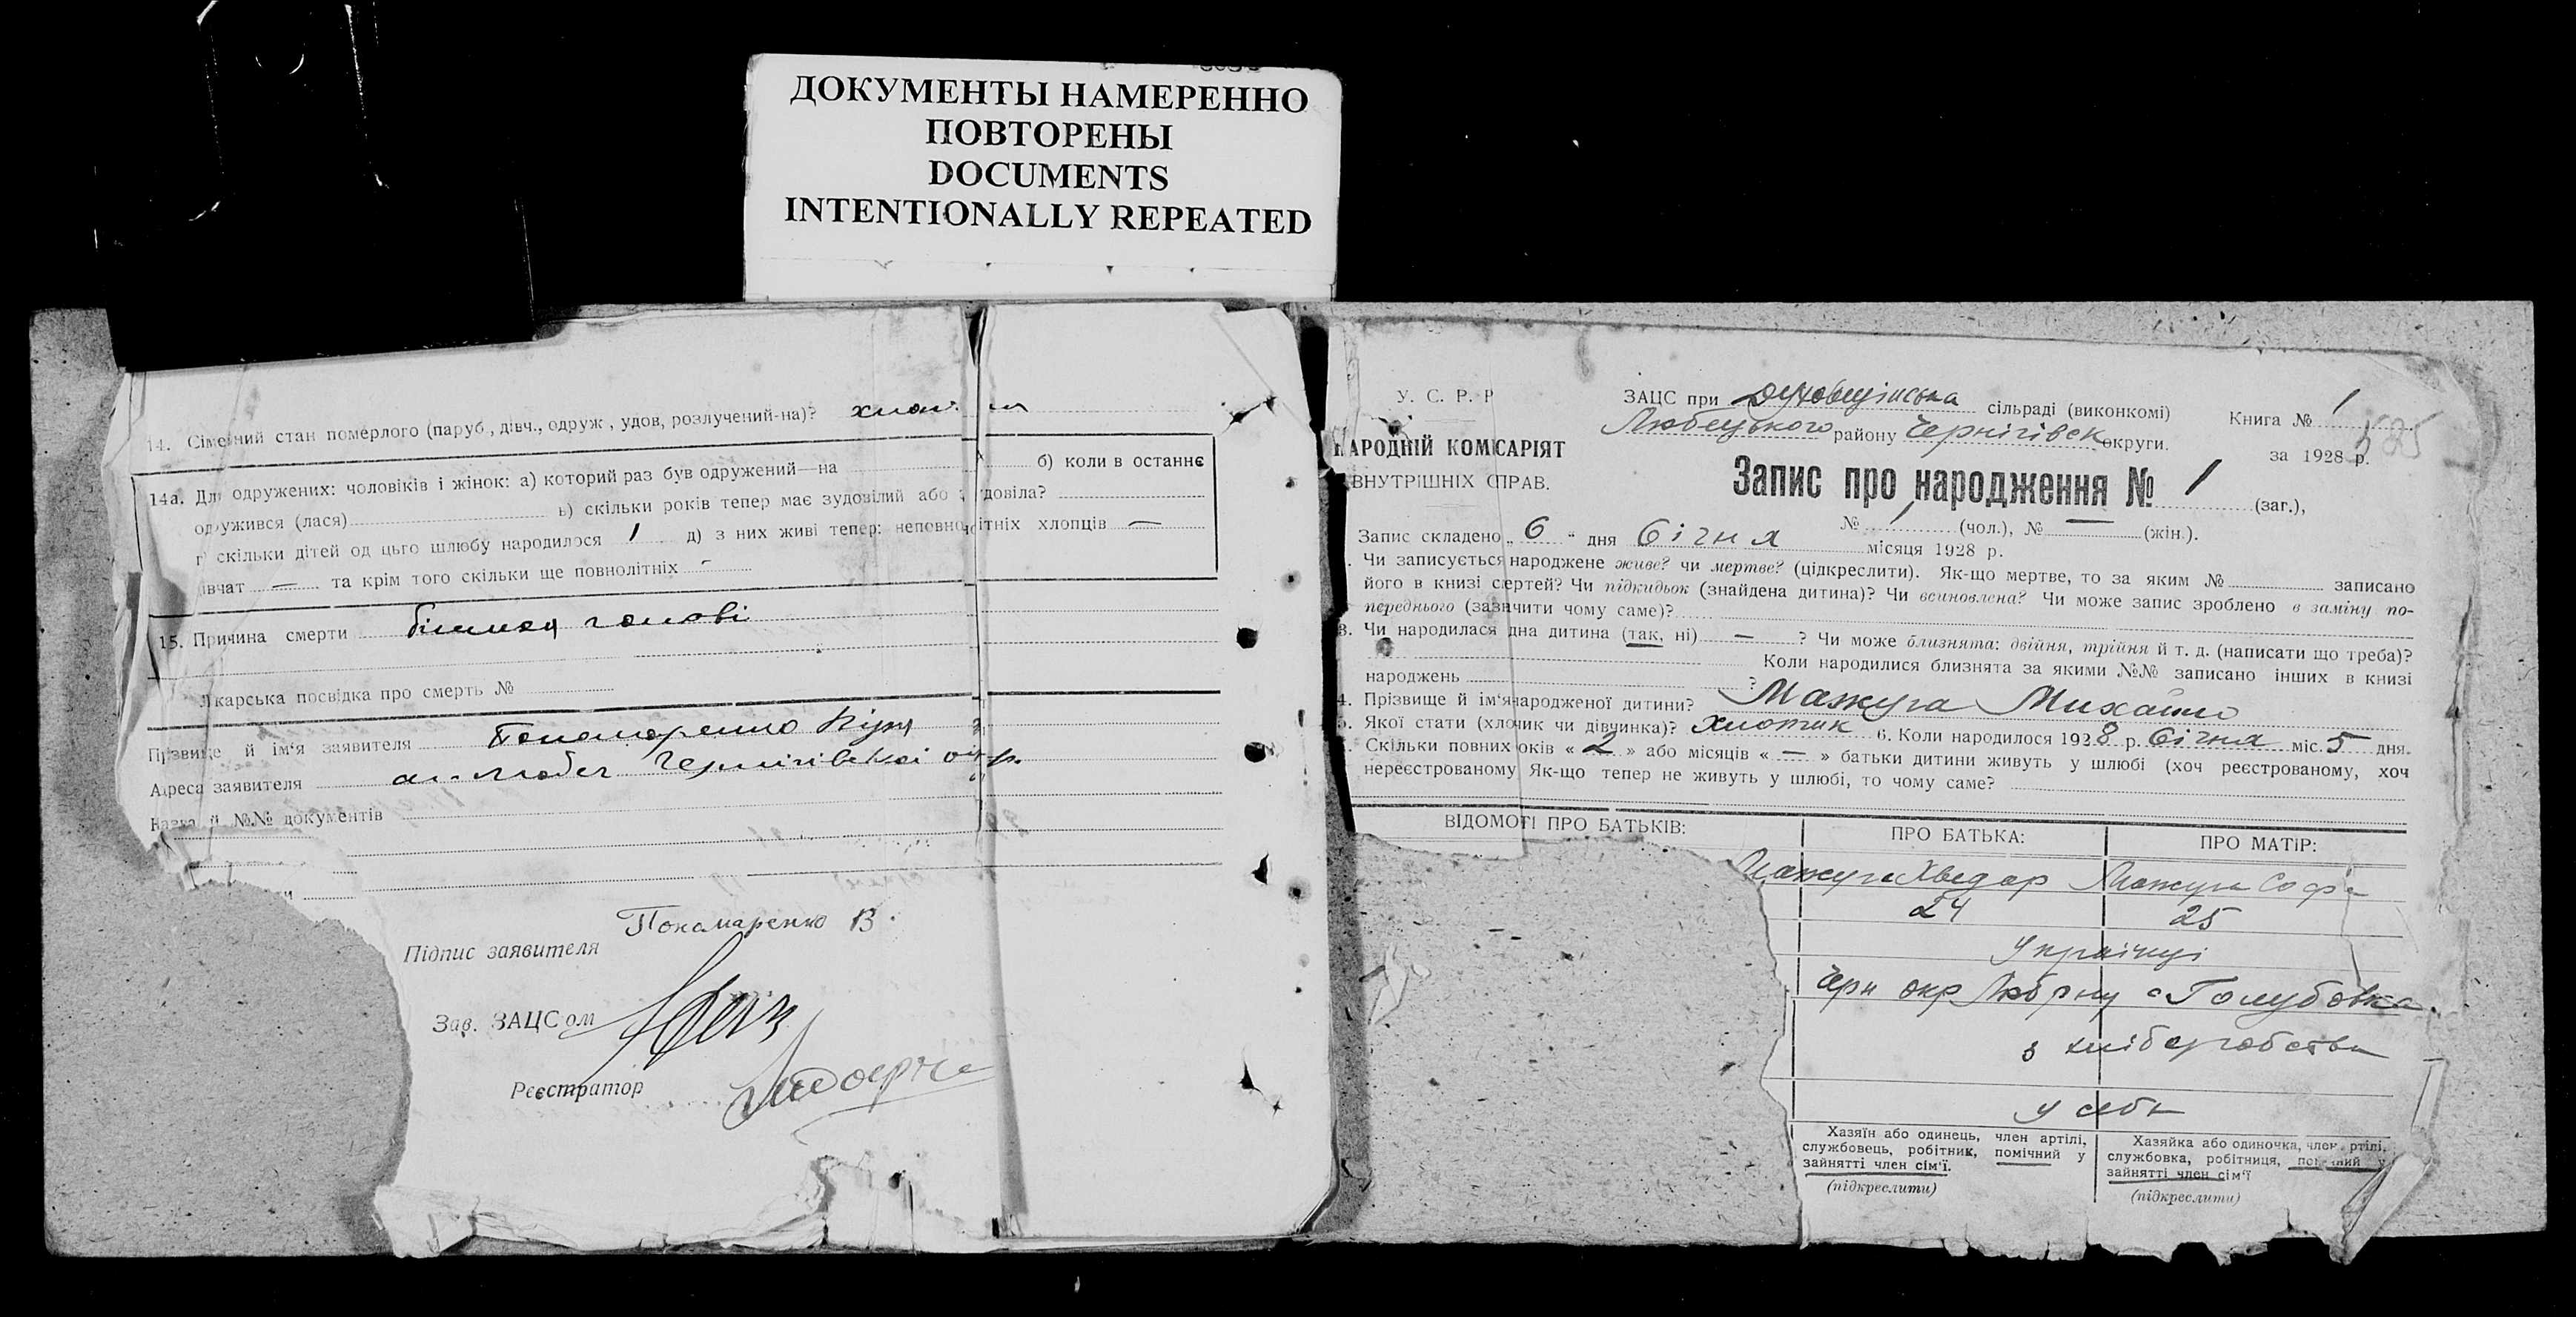 ДОКУМЕНТЫ НАМЕРЕННО
ПОВТОРЕНЫ
DOCUMENTS
INTENTIONALLY REPEATED
14. Сімейний стан померлого (паруб., дівч., одруж., удов, розлучений-на)?
14а. Для одружених: чоловіків і жінок: а) которий раз був одружений—на б) коли в останнє
одружився (лася) в) скільки років тепер має зудовілий або удовіла?
г) скільки дітей од цього шлюбу народилося 1 д) з них живі тепер: неповнолітніх хлопців —
дівчат — та крім того скільки ще повнолітніх -
15. Причина смерти голові
Лікарська посвідка про смерть №
Прізвище й ім'я заявителя Пономаренко
Адреса заявителя м. Любеч Чернігівської окр.
Назва й №№ документів
Підпис заявителя Пономаренко В.
Зав. ЗАЦСом
Реєстратор
У. С. Р. Р
НАРОДНІЙ КОМІСАРІЯТ
ВНУТРІШНІХ СПРАВ.
ЗАЦС при Духовщінська сільраді (виконкомі)
Любецького району Чернігівськ округи.
Книга № 1
за 1928 р.
Запис про народження № 1 (заг.),
№ 1 (чол.), № — (жін.).
Запис складено „ 6 “ дня Січня місяця 1928 р.
Чи записується народжене живе? чи мертве? (підкреслити). Як-що мертве, то за яким № записано
його в книзі смертей? Чи підкидьок (знайдена дитина)? Чи всиновлена? Чи може запис зроблено в заміну по-
переднього (зазначити чому саме)?
3. Чи народилася одна дитина (так, ні) — ? Чи може близнята: двійня, трійня й т. д. (написати що треба)?
Коли народилися близнята за якими №№ записано інших в книзі
народжень ?
4. Прізвище й ім'я народженої дитини? Мажуга Михайло
5. Якої стати (хлопчик чи дівчинка)? хлопчик 6. Коли народилося 1928 р. Січня міс. 5 дня.
Скільки повних років « 2 » або місяців « — » батьки дитини живуть у шлюбі (хоч реєстрованому, хоч
нереєстрованому Як-що тепер не живуть у шлюбі, то чому саме?
ВІДОМОСТІ ПРО БАТЬКІВ: ПРО БАТЬКА: ПРО МАТІР:
Мажуга Хведар Мажуга Соф
24 25
Українці
Черн окр Люб рну с Голубовка
з хліборобства
у себе
Хазяїн або одинець, член артілі, службовець, робітник, помічний у зайнятті член сім'ї.
(підкреслити)
Хазяйка або одиночка, член артілі, службовка, робітниця, помічний у зайнятті член сім'ї
(підкреслити)